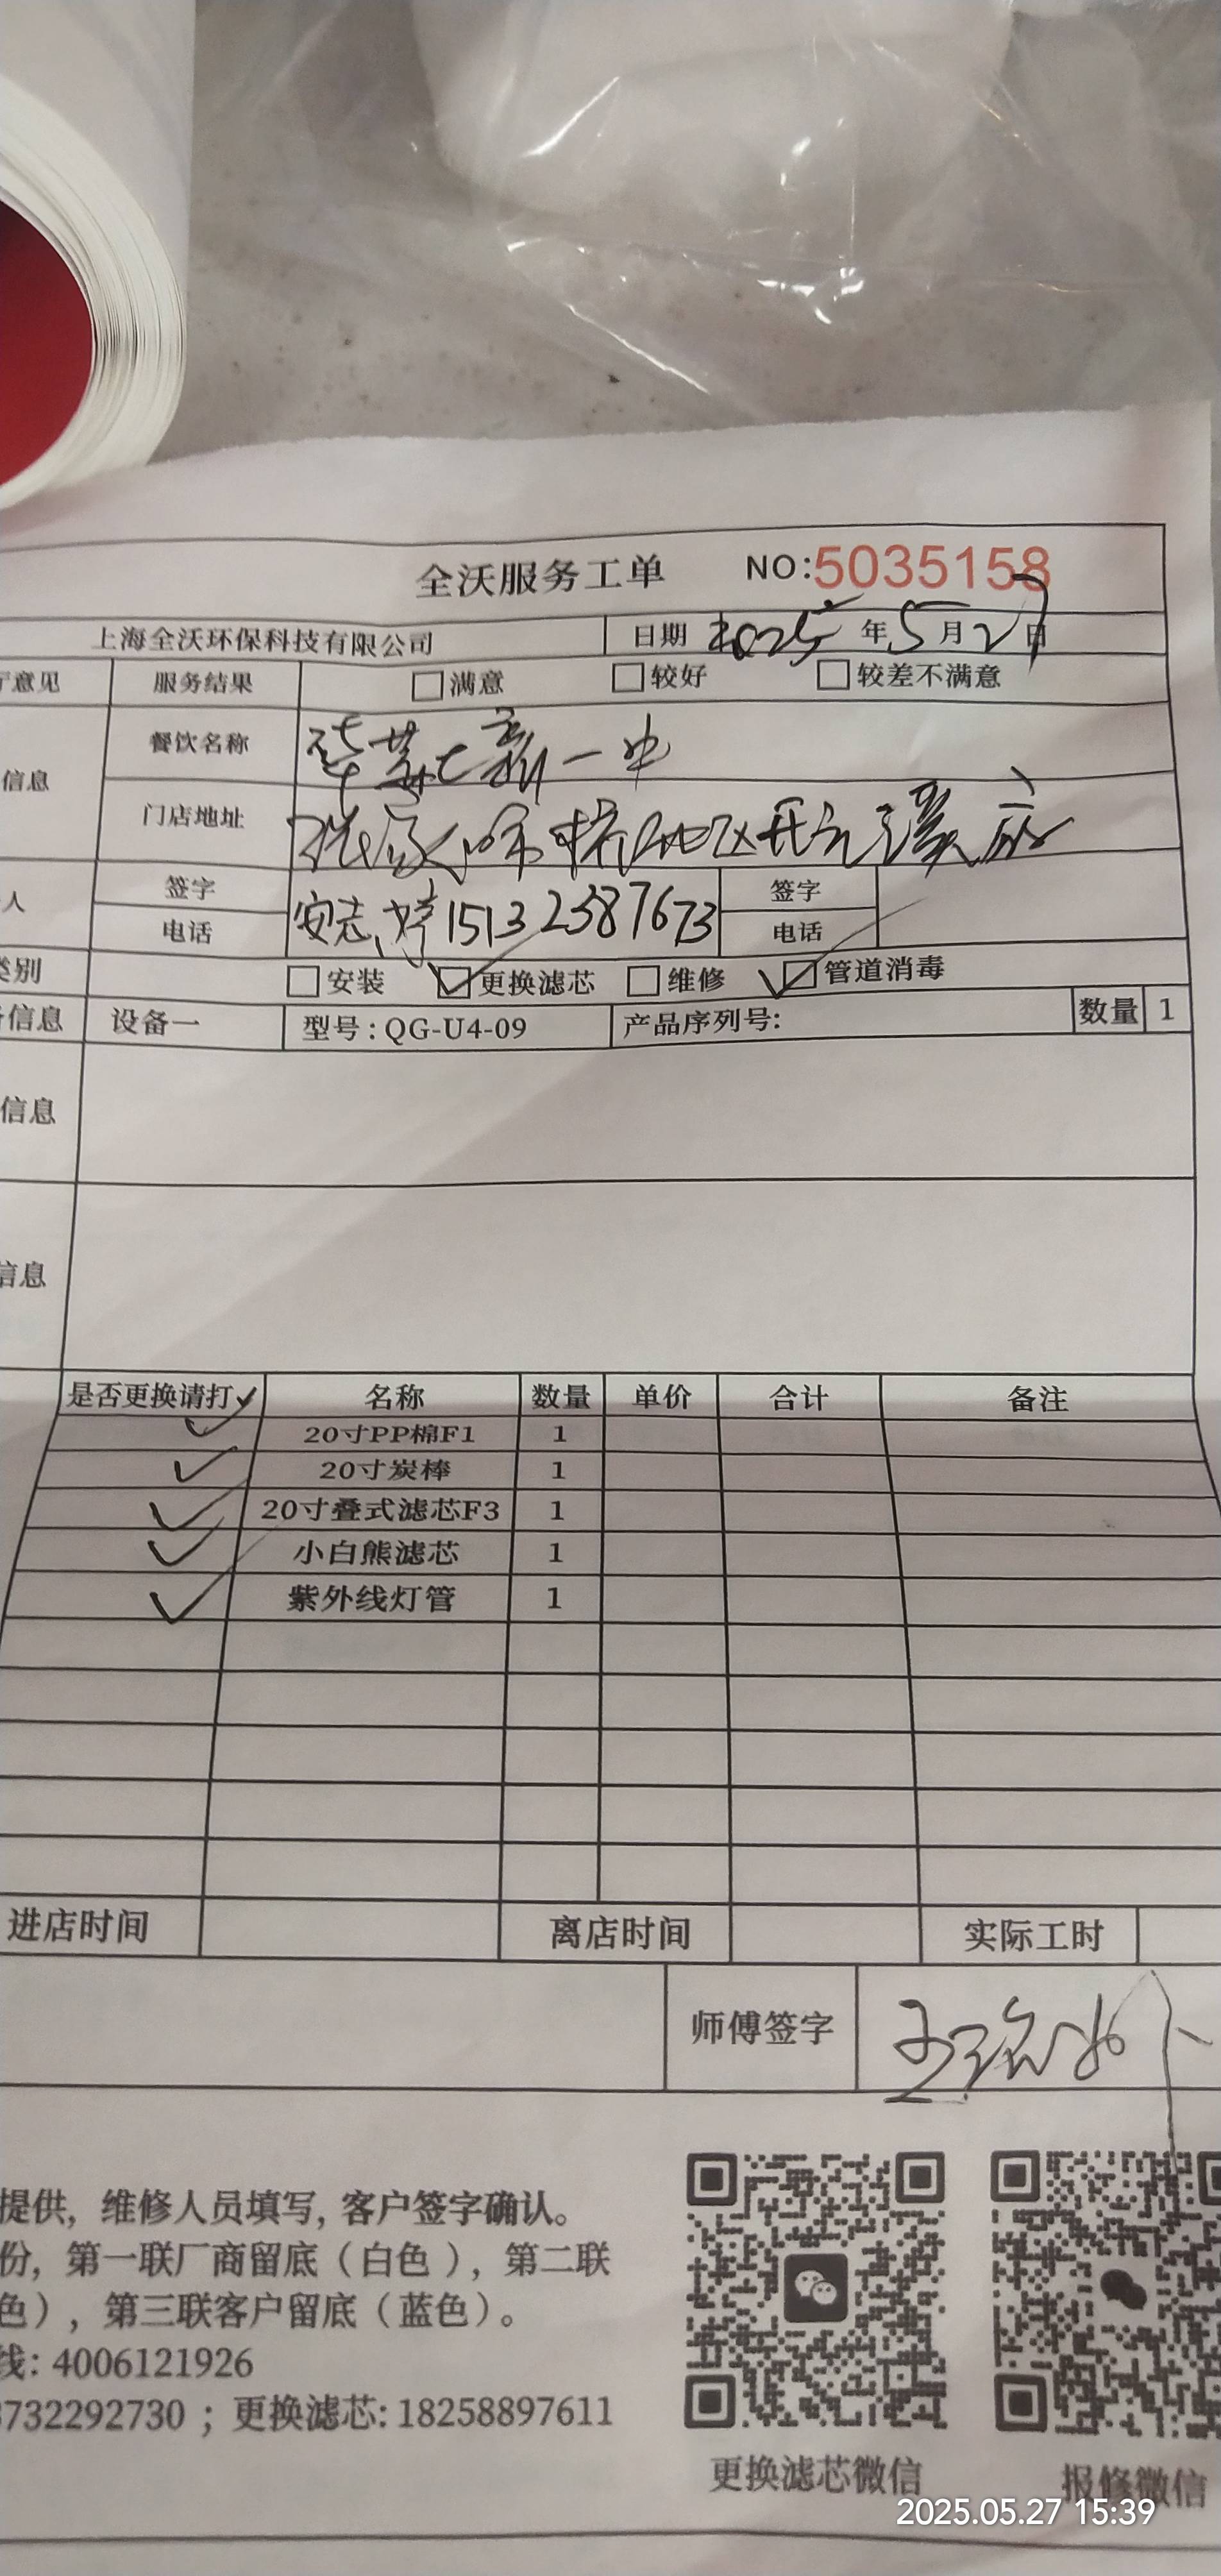 全沃服务工单 NO:5035158
上海全沃环保科技有限公司 日期 2025年5月27日
意见 服务结果 □满意 □较好 □较差不满意
信息 餐饮名称 华莱士 一中
门店地址 张家 市 区开元
人 签字 安志 签字
电话 15132387673 电话
类别 □安装 ☑更换滤芯 □维修 ☑管道消毒
信息 设备一 型号:QG-U4-09 产品序列号: 数量 1
信息
信息
是否更换请打✓ 名称 数量 单价 合计 备注
✓ 20寸PP棉F1 1
✓ 20寸炭棒 1
✓ 20寸叠式滤芯F3 1
✓ 小白熊滤芯 1
✓ 紫外线灯管 1
进店时间 离店时间 实际工时
师傅签字 王
提供,维修人员填写,客户签字确认。
份,第一联厂商留底(白色),第二联
色),第三联客户留底(蓝色)。
线:4006121926
3732292730;更换滤芯:18258897611
更换滤芯微信 报修微信
2025.05.27 15:39